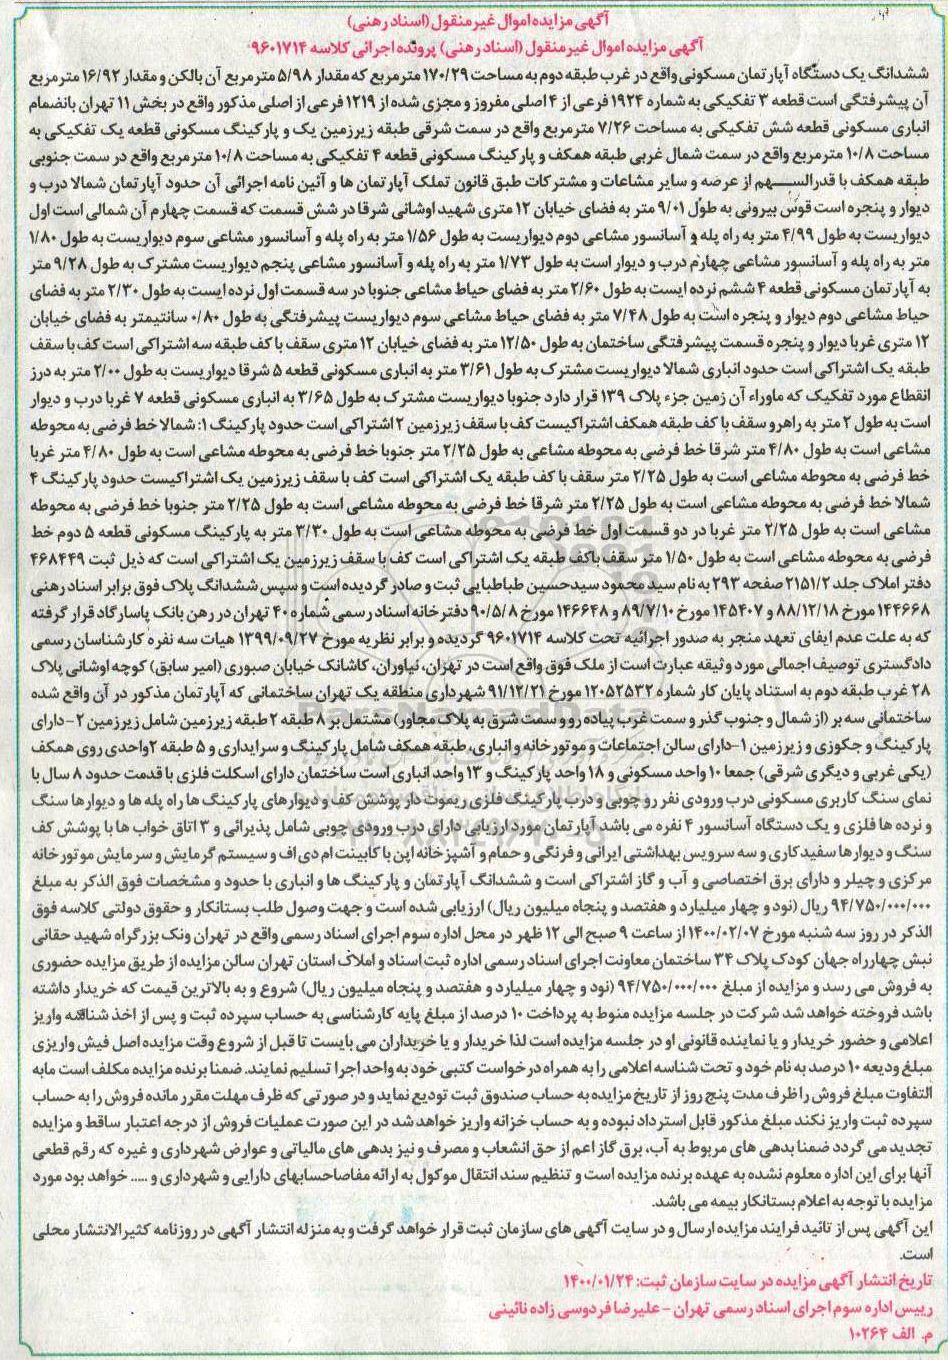 آگهی مزایده اموال غیرمنقول (اسناد رهنی)
آگهی مزایده اموال غیرمنقول (اسناد رهنی) پرونده اجرائی کلاسه ۹۶۰۱۷۱۴
ششدانگ یک دستگاه آپارتمان مسکونی واقع در غرب طبقه دوم به مساحت ۱۷۰/۲۹ مترمربع که مقدار ۵/۹۸ مترمربع آن بالکن و مقدار ۱۶/۹۲ مترمربع
آن پیشرفتگی است قطعه ۳ تفکیکی به شماره ۱۹۲۴ فرعی از ۴ اصلی مفروز و مجزی شده از ۱۲۱۹ فرعی از اصلی مذکور واقع در بخش ۱۱ تهران بانضمام
انباری مسکونی قطعه شش تفکیکی به مساحت ۷/۲۶ مترمربع واقع در سمت شرقی طبقه زیرزمین یک و پارکینگ مسکونی قطعه یک تفکیکی به
مساحت ۱۰/۸ مترمربع واقع در سمت شمال غربی طبقه همکف و پارکینگ مسکونی قطعه ۴ تفکیکی به مساحت ۱۰/۸ مترمربع واقع در سمت جنوبی
طبقه همکف با قدرالسهم از عرصه و سایر مشاعات و مشترکات طبق قانون تملک آپارتمان ها و آئین نامه اجرائی آن حدود آپارتمان شمالا درب و
دیوار و پنجره است قوس بیرونی به طول ۹/۰۱ متر به فضای خیابان ۱۲ متری شهید اوشانی شرقا در شش قسمت که قسمت چهارم آن شمالی است اول
دیواریست به طول ۴/۹۹ متر به راه پله و آسانسور مشاعی دوم دیواریست به طول ۱/۵۶ متر به راه پله و آسانسور مشاعی سوم دیواریست به طول ۱/۸۰
متر به راه پله و آسانسور مشاعی چهارم درب و دیوار است به طول ۱/۷۳ متر به راه پله و آسانسور مشاعی پنجم دیواریست مشترک به طول ۹/۲۸ متر
به آپارتمان مسکونی قطعه ۴ ششم نرده ایست به طول ۲/۶۰ متر به فضای حیاط مشاعی جنوبا در سه قسمت اول نرده ایست به طول ۲/۳۰ متر به فضای
حیاط مشاعی دوم دیوار و پنجره است به طول ۷/۴۸ متر به فضای حیاط مشاعی سوم دیواریست پیشرفتگی به طول ۰/۸۰ سانتیمتر به فضای خیابان
۱۲ متری غربا دیوار و پنجره قسمت پیشرفتگی ساختمان به طول ۱۲/۵۰ متر به فضای خیابان ۱۲ متری سقف با کف طبقه سه اشتراکی است کف با سقف
طبقه یک اشتراکی است حدود انباری شمالا دیواریست مشترک به طول ۳/۶۱ متر به انباری مسکونی قطعه ۵ شرقا دیواریست به طول ۲/۰۰ متر به درز
انقطاع مورد تفکیک که ماوراء آن زمین جزء پلاک ۱۳۹ قرار دارد جنوبا دیواریست مشترک به طول ۳/۶۵ به انباری مسکونی قطعه ۷ غربا درب و دیوار
است به طول ۲ متر به راهرو سقف با کف طبقه همکف اشتراکیست کف با سقف زیرزمین ۲ اشتراکی است حدود پارکینگ ۱: شمالا خط فرضی به محوطه
مشاعی است به طول ۴/۸۰ متر شرقا خط فرضی به محوطه مشاعی به طول ۲/۲۵ متر جنوبا خط فرضی به محوطه مشاعی است به طول ۴/۸۰ متر غربا
خط فرضی به محوطه مشاعی است به طول ۲/۲۵ متر سقف با کف طبقه یک اشتراکی است کف با سقف زیرزمین یک اشتراکیست حدود پارکینگ ۴
شمالا خط فرضی به محوطه مشاعی است به طول ۲/۲۵ متر شرقا خط فرضی به محوطه مشاعی است به طول ۲/۲۵ متر جنوبا خط فرضی به محوطه
مشاعی است به طول ۲/۲۵ متر غربا در دو قسمت اول خط فرضی به محوطه مشاعی است به طول ۳/۳۰ متر به پارکینگ مسکونی قطعه ۵ دوم خط
فرضی به محوطه مشاعی است به طول ۱/۵۰ متر سقف باکف طبقه یک اشتراکی است کف با سقف زیرزمین یک اشتراکی است که ذیل ثبت ۴۶۸۴۴۹
دفتر املاک جلد ۲۱۵۱/۲ صفحه ۲۹۳ به نام سید محمود سیدحسین طباطبایی ثبت و صادر گردیده است و سپس ششدانگ پلاک فوق برابر اسناد رهنی
۱۴۴۶۶۸ مورخ ۸۸/۱۲/۱۸ و ۱۴۵۴۰۷ مورخ ۸۹/۷/۱۰ و ۱۴۶۶۴۸ مورخ ۹۰/۵/۸ دفترخانه اسناد رسمی شماره ۴۰ تهران در رهن بانک پاسارگاد قرار گرفته
که به علت عدم ایفای تعهد منجر به صدور اجرائیه تحت کلاسه ۹۶۰۱۷۱۴ گردیده و برابر نظریه مورخ ۱۳۹۹/۰۹/۲۷ هیات سه نفره کارشناسان رسمی
دادگستری توصیف اجمالی مورد وثیقه عبارت است از ملک فوق واقع است در تهران، نیاوران، کاشانک خیابان صبوری (امیر سابق) کوچه اوشانی پلاک
۲۸ غرب طبقه دوم به استناد پایان کار شماره ۱۲۰۵۲۵۳۲ مورخ ۹۱/۱۲/۲۱ شهرداری منطقه یک تهران ساختمانی که آپارتمان مذکور در آن واقع شده
ساختمانی سه بر (از شمال و جنوب گذر و سمت غرب پیاده رو و سمت شرق به پلاک مجاور) مشتمل بر ۸ طبقه ۲ طبقه زیرزمین شامل زیرزمین ۲-دارای
پارکینگ و جکوزی و زیرزمین ۱-دارای سالن اجتماعات و موتورخانه و انباری، طبقه همکف شامل پارکینگ و سرایداری و ۵ طبقه ۲واحدی روی همکف
(یکی غربی و دیگری شرقی) جمعا ۱۰ واحد مسکونی و ۱۸ واحد پارکینگ و ۱۳ واحد انباری است ساختمان دارای اسکلت فلزی با قدمت حدود ۸ سال با
نمای سنگ کاربری مسکونی درب ورودی نفر رو چوبی و درب پارکینگ فلزی ریموت دار پوشش کف و دیوارهای پارکینگ ها راه پله ها و دیوارها سنگ
و نرده ها فلزی و یک دستگاه آسانسور ۴ نفره می باشد آپارتمان مورد ارزیابی دارای درب ورودی چوبی شامل پذیرائی و ۳ اتاق خواب ها با پوشش کف
سنگ و دیوارها سفیدکاری و سه سرویس بهداشتی ایرانی و فرنگی و حمام و آشپزخانه اپن با کابینت ام دی اف و سیستم گرمایش و سرمایش موتورخانه
مرکزی و چیلر و دارای برق اختصاصی و آب و گاز اشتراکی است و ششدانگ آپارتمان و پارکینگ ها و انباری با حدود و مشخصات فوق الذکر به مبلغ
۹۴/۷۵۰/۰۰۰/۰۰۰ ریال (نود و چهار میلیارد و هفتصد و پنجاه میلیون ریال) ارزیابی شده است و جهت وصول طلب بستانکار و حقوق دولتی کلاسه فوق
الذکر در روز سه شنبه مورخ ۱۴۰۰/۰۲/۰۷ از ساعت ۹ صبح الی ۱۲ ظهر در محل اداره سوم اجرای اسناد رسمی واقع در تهران ونک بزرگراه شهید حقانی
نبش چهارراه جهان کودک پلاک ۳۴ ساختمان معاونت اجرای اسناد رسمی اداره ثبت اسناد و املاک استان تهران سالن مزایده از طریق مزایده حضوری
به فروش می رسد و مزایده از مبلغ ۹۴/۷۵۰/۰۰۰/۰۰۰ (نود و چهار میلیارد و هفتصد و پنجاه میلیون ریال) شروع و به بالاترین قیمت که خریدار داشته
باشد فروخته خواهد شد شرکت در جلسه مزایده منوط به پرداخت ۱۰ درصد از مبلغ پایه کارشناسی به حساب سپرده ثبت و پس از اخذ شناسه واریز
اعلامی و حضور خریدار و یا نماینده قانونی او در جلسه مزایده است لذا خریدار و یا خریداران می بایست تا قبل از شروع وقت مزایده اصل فیش واریزی
مبلغ ودیعه ۱۰ درصد به نام خود و تحت شناسه اعلامی را به همراه درخواست کتبی خود به واحد اجرا تسلیم نمایند. ضمنا برنده مزایده مکلف است مابه
التفاوت مبلغ فروش را ظرف مدت پنج روز از تاریخ مزایده به حساب صندوق ثبت تودیع نماید و در صورتی که ظرف مهلت مقرر مانده فروش را به حساب
سپرده ثبت واریز نکند مبلغ مذکور قابل استرداد نبوده و به حساب خزانه واریز خواهد شد در این صورت عملیات فروش از درجه اعتبار ساقط و مزایده
تجدید می گردد ضمنا بدهی های مربوط به آب، برق گاز اعم از حق انشعاب و مصرف و نیز بدهی های مالیاتی و عوارض شهرداری و غیره که رقم قطعی
آنها برای این اداره معلوم نشده به عهده برنده مزایده است و تنظیم سند انتقال موکول به ارائه مفاصاحسابهای دارایی و شهرداری و ..... خواهد بود مورد
مزایده با توجه به اعلام بستانکار بیمه می باشد.
این آگهی پس از تائید فرایند مزایده ارسال و در سایت آگهی های سازمان ثبت قرار خواهد گرفت و به منزله انتشار آگهی در روزنامه کثیرالانتشار محلی
است.
تاریخ انتشار آگهی مزایده در سایت سازمان ثبت: ۱۴۰۰/۰۱/۲۴
رییس اداره سوم اجرای اسناد رسمی تهران - علیرضا فردوسی زاده نائینی
م. الف ۱۰۲۶۴